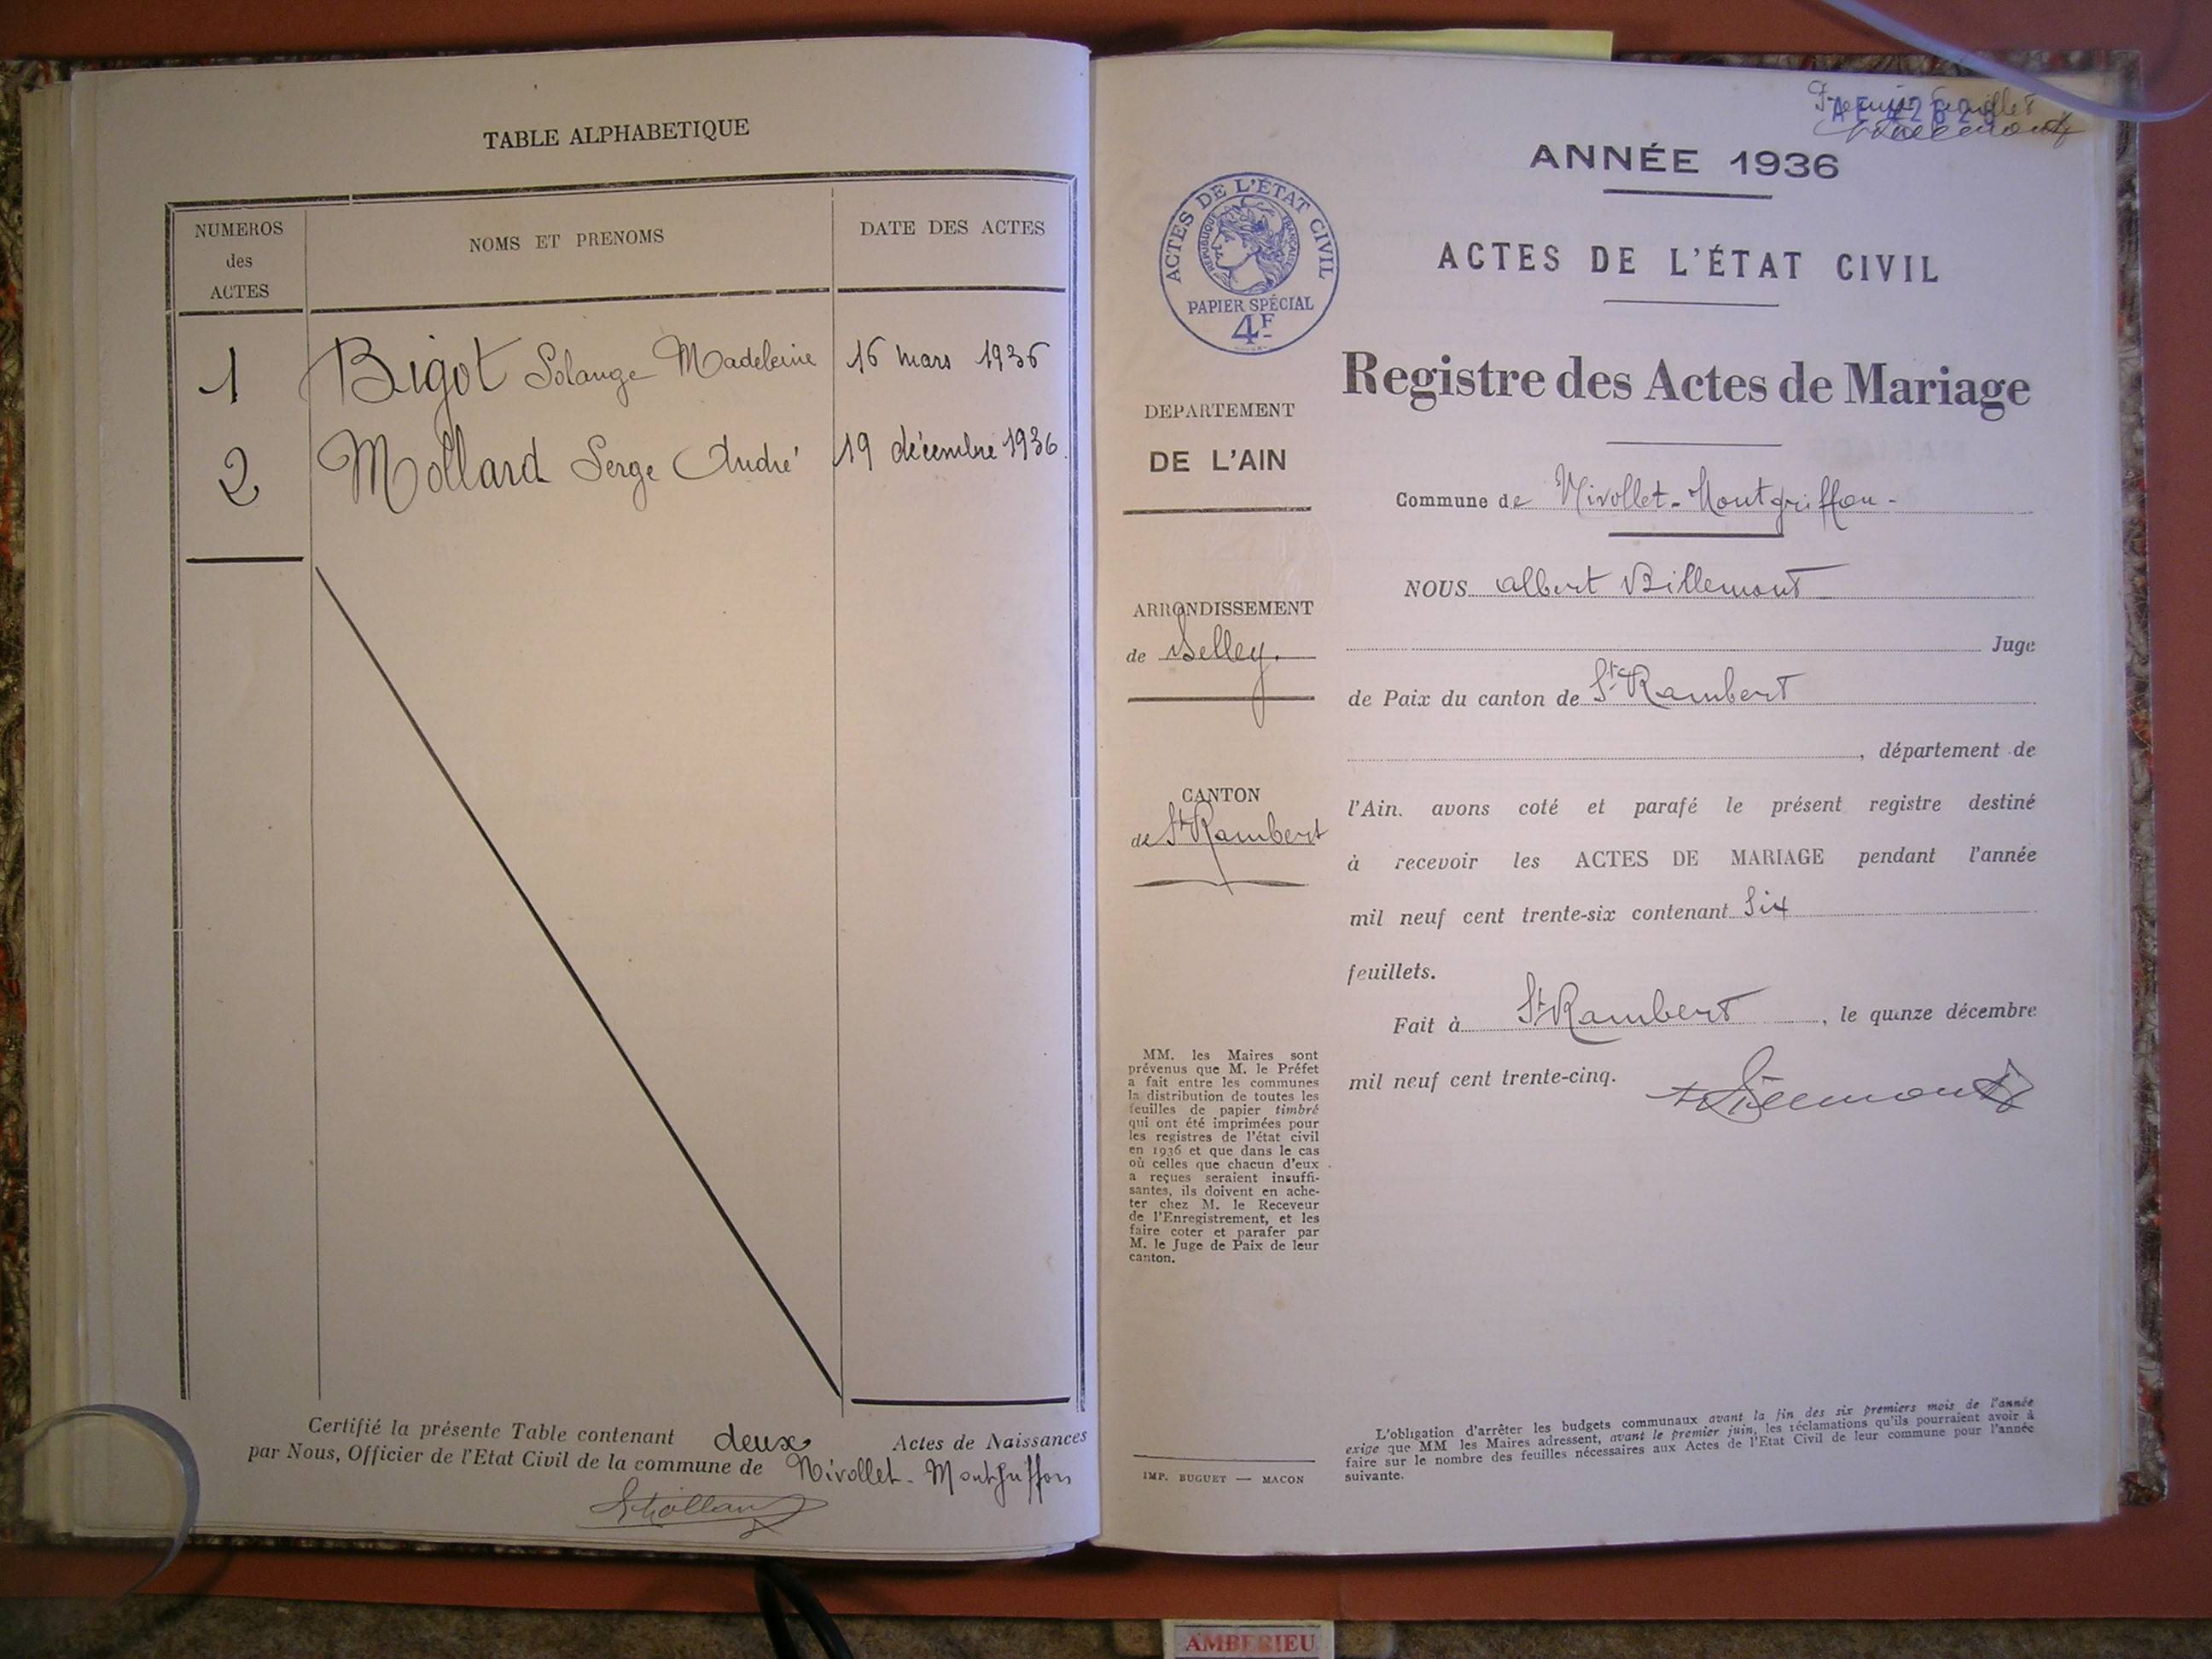 TABLE ALPHABETIQUE
NUMEROS
des
ACTES
NOMS ET PRENOMS
DATE DES ACTES
1 Bigot Solange Madeleine 16 mars 1936
2 Mollard Serge André 19 décembre 1936.
Certifié la présente Table contenant deux Actes de Naissances
par Nous, Officier de l'Etat Civil de la commune de Nivollet-Montgriffon
Premier feuillet
ANNÉE 1936
ACTES DE L'ÉTAT CIVIL
RÉPUBLIQUE FRANÇAISE
PAPIER SPÉCIAL
4F
ACTES DE L'ÉTAT CIVIL
Registre des Actes de Mariage
DEPARTEMENT
DE L'AIN
ARRONDISSEMENT
de Belley.
CANTON
de St Rambert
MM. les Maires sont
prévenus que M. le Préfet
a fait entre les communes
la distribution de toutes les
feuilles de papier timbré
qui ont été imprimées pour
les registres de l'état civil
en 1936 et que dans le cas
où celles que chacun d'eux
a reçues seraient insuffi-
santes, ils doivent en ache-
ter chez M. le Receveur
de l'Enregistrement, et les
faire coter et parafer par
M. le Juge de Paix de leur
canton.
IMP. BUGUET — MACON
Commune de Nivollet-Montgriffon-
NOUS Albert Billemont
Juge
de Paix du canton de St Rambert
, département de
l'Ain. avons coté et parafé le présent registre destiné
à recevoir les ACTES DE MARIAGE pendant l'année
mil neuf cent trente-six contenant Six
feuillets.
Fait à St Rambert, le quinze décembre
mil neuf cent trente-cinq.
L'obligation d'arrêter les budgets communaux avant la fin des six premiers mois de l'année
exige que MM les Maires adressent, avant le premier juin, les réclamations qu'ils pourraient avoir à
faire sur le nombre des feuilles nécessaires aux Actes de l'Etat Civil de leur commune pour l'année
suivante.
AMBERIEU